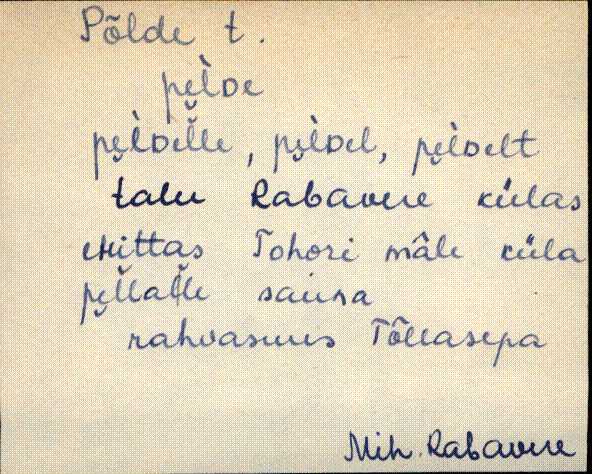 Põlde t.
pe̮l̀de
pe̮l̀del̆le, pe̮l̀del, pe̮l̀delt
talu Rabavere külas
ehittas Tohori mâle küla
pe̮l̆lal̆le sauna
rahvasuus Tõllasepa
Mih. Rabavere